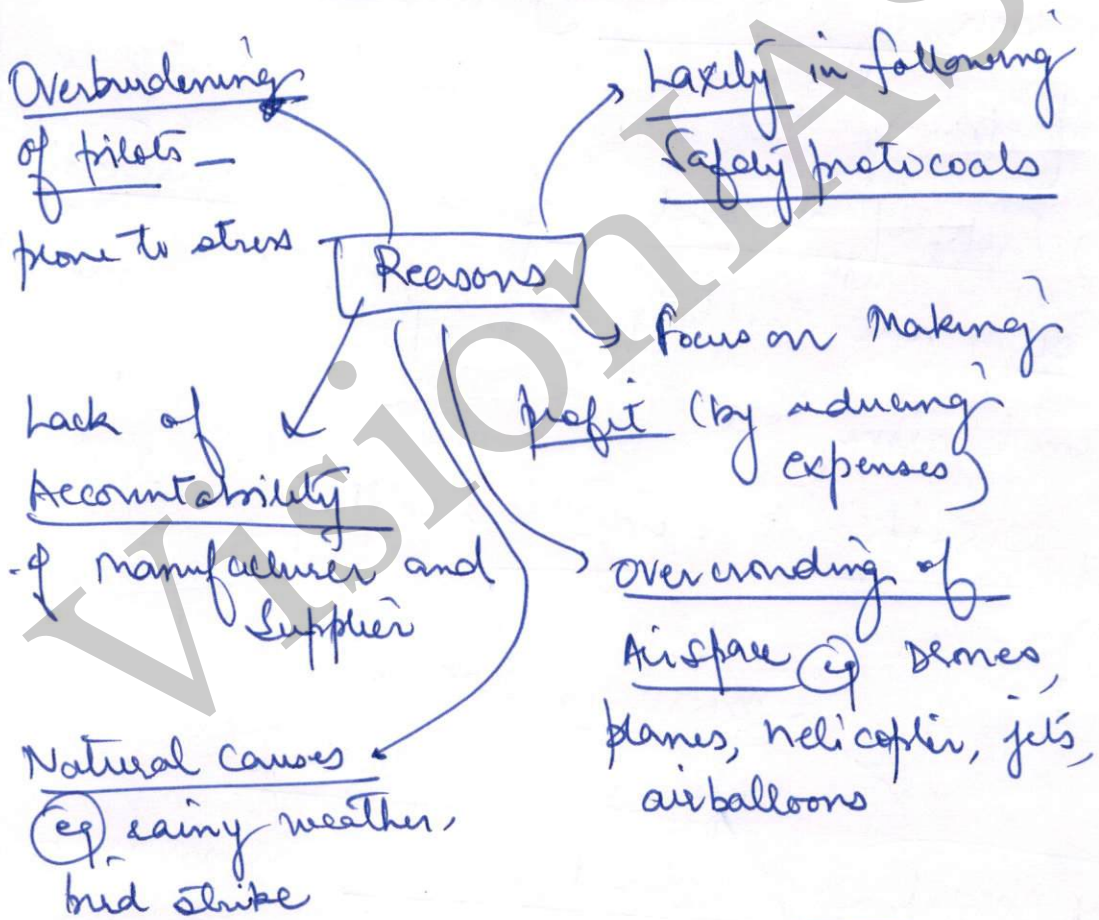 Reasons
Overburdening
of pilots –
prone to stress
Laxity in following
Safety protocoals
Focus on Making
profit (by reducing
expenses)
Lack of
Accountability
of manufacturer and
Supplier
overcrowding of
Airspace eg Drones,
planes, helicopter, jets,
airballoons
Natural causes
eg rainy weather,
bird strike
VisionIAS